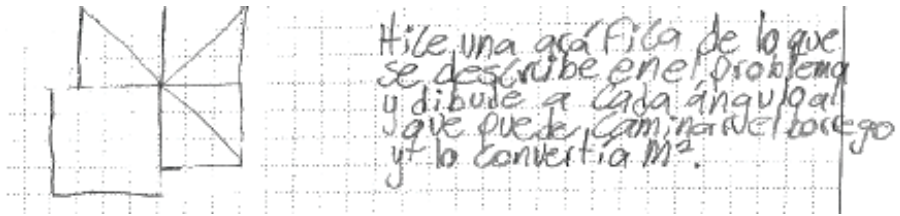 Hice una gráfica de lo que
se describe en el problema
y dibuje a cada ángulo al
que puede caminar el borrego
y lo convertí a m².